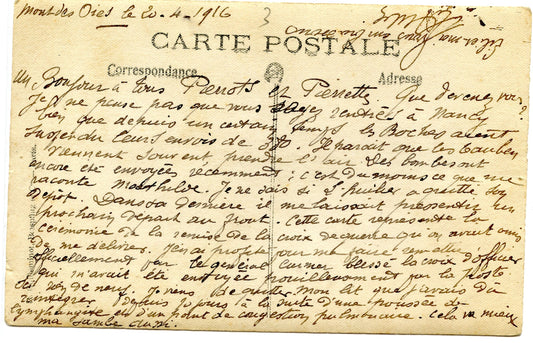 mont des Oies le 20-4-1916
CARTE POSTALE
Correspondance
Adresse
Un Bonjour à tous Pierrots et Pierrette. Que devenez vous?
Je ne pense pas que vous soyez rentrés à Nancy
bien que depuis un certain temps les Boches aient
suspendu leurs envois de 380. Il parait que les taubes
viennent souvent prendre l'air. Des bombes ont
encore été envoyées récemment; c'est du moins ce que me
raconte Mathilde. Je ne sais si L'huilier a quitté son
Dépôt. Dans sa dernière il me laissait pressentir un
prochain départ au front. Cette carte représente la
cérémonie de la remise de la croix de guerre qu'on avait omis
de me délivrer. J'en ai profité pour me faire remettre
officiellement par le général blessé la croix d'officier
qui m'avait été envoyée par la poste
Je viens de quitter mon lit que j'avais dû
réintégrer depuis jours à la suite d'une poussée de
lymphangite et d'un point de congestion pulmonaire. Cela va mieux
ma jambe aussi.